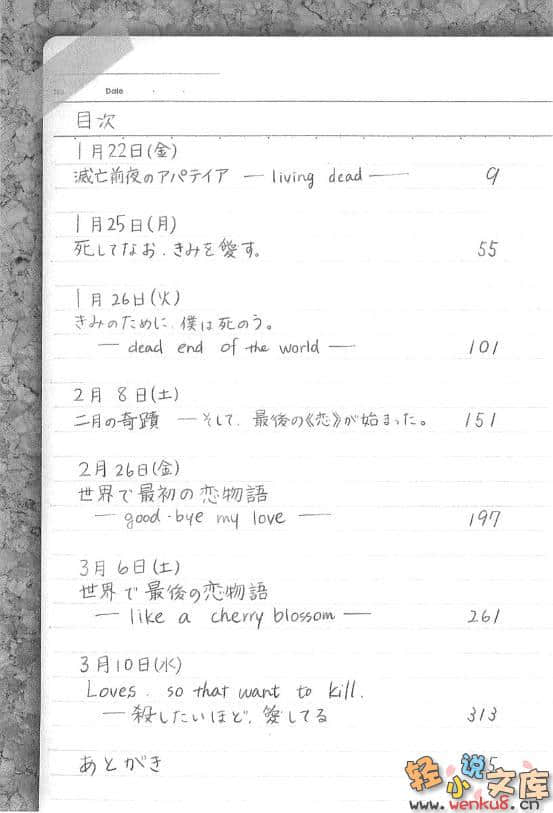 No.
Date
目次
1月22日(金)
滅亡前夜のアパテイア —living dead— 9
1月25日(月)
死してなお、きみを愛す。 55
1月26日(火)
きみのために、僕は死のう。
—dead end of the world— 101
2月8日(土)
二月の奇蹟 —そして、最後の《恋》が始まった。 151
2月26日(金)
世界で最初の恋物語
—good-bye my love— 197
3月6日(土)
世界で最後の恋物語
—like a cherry blossom— 261
3月10日(水)
Loves, so that want to kill.
—殺したいほど、愛してる 313
あとがき
轻小说文库
www.wenku8.cn